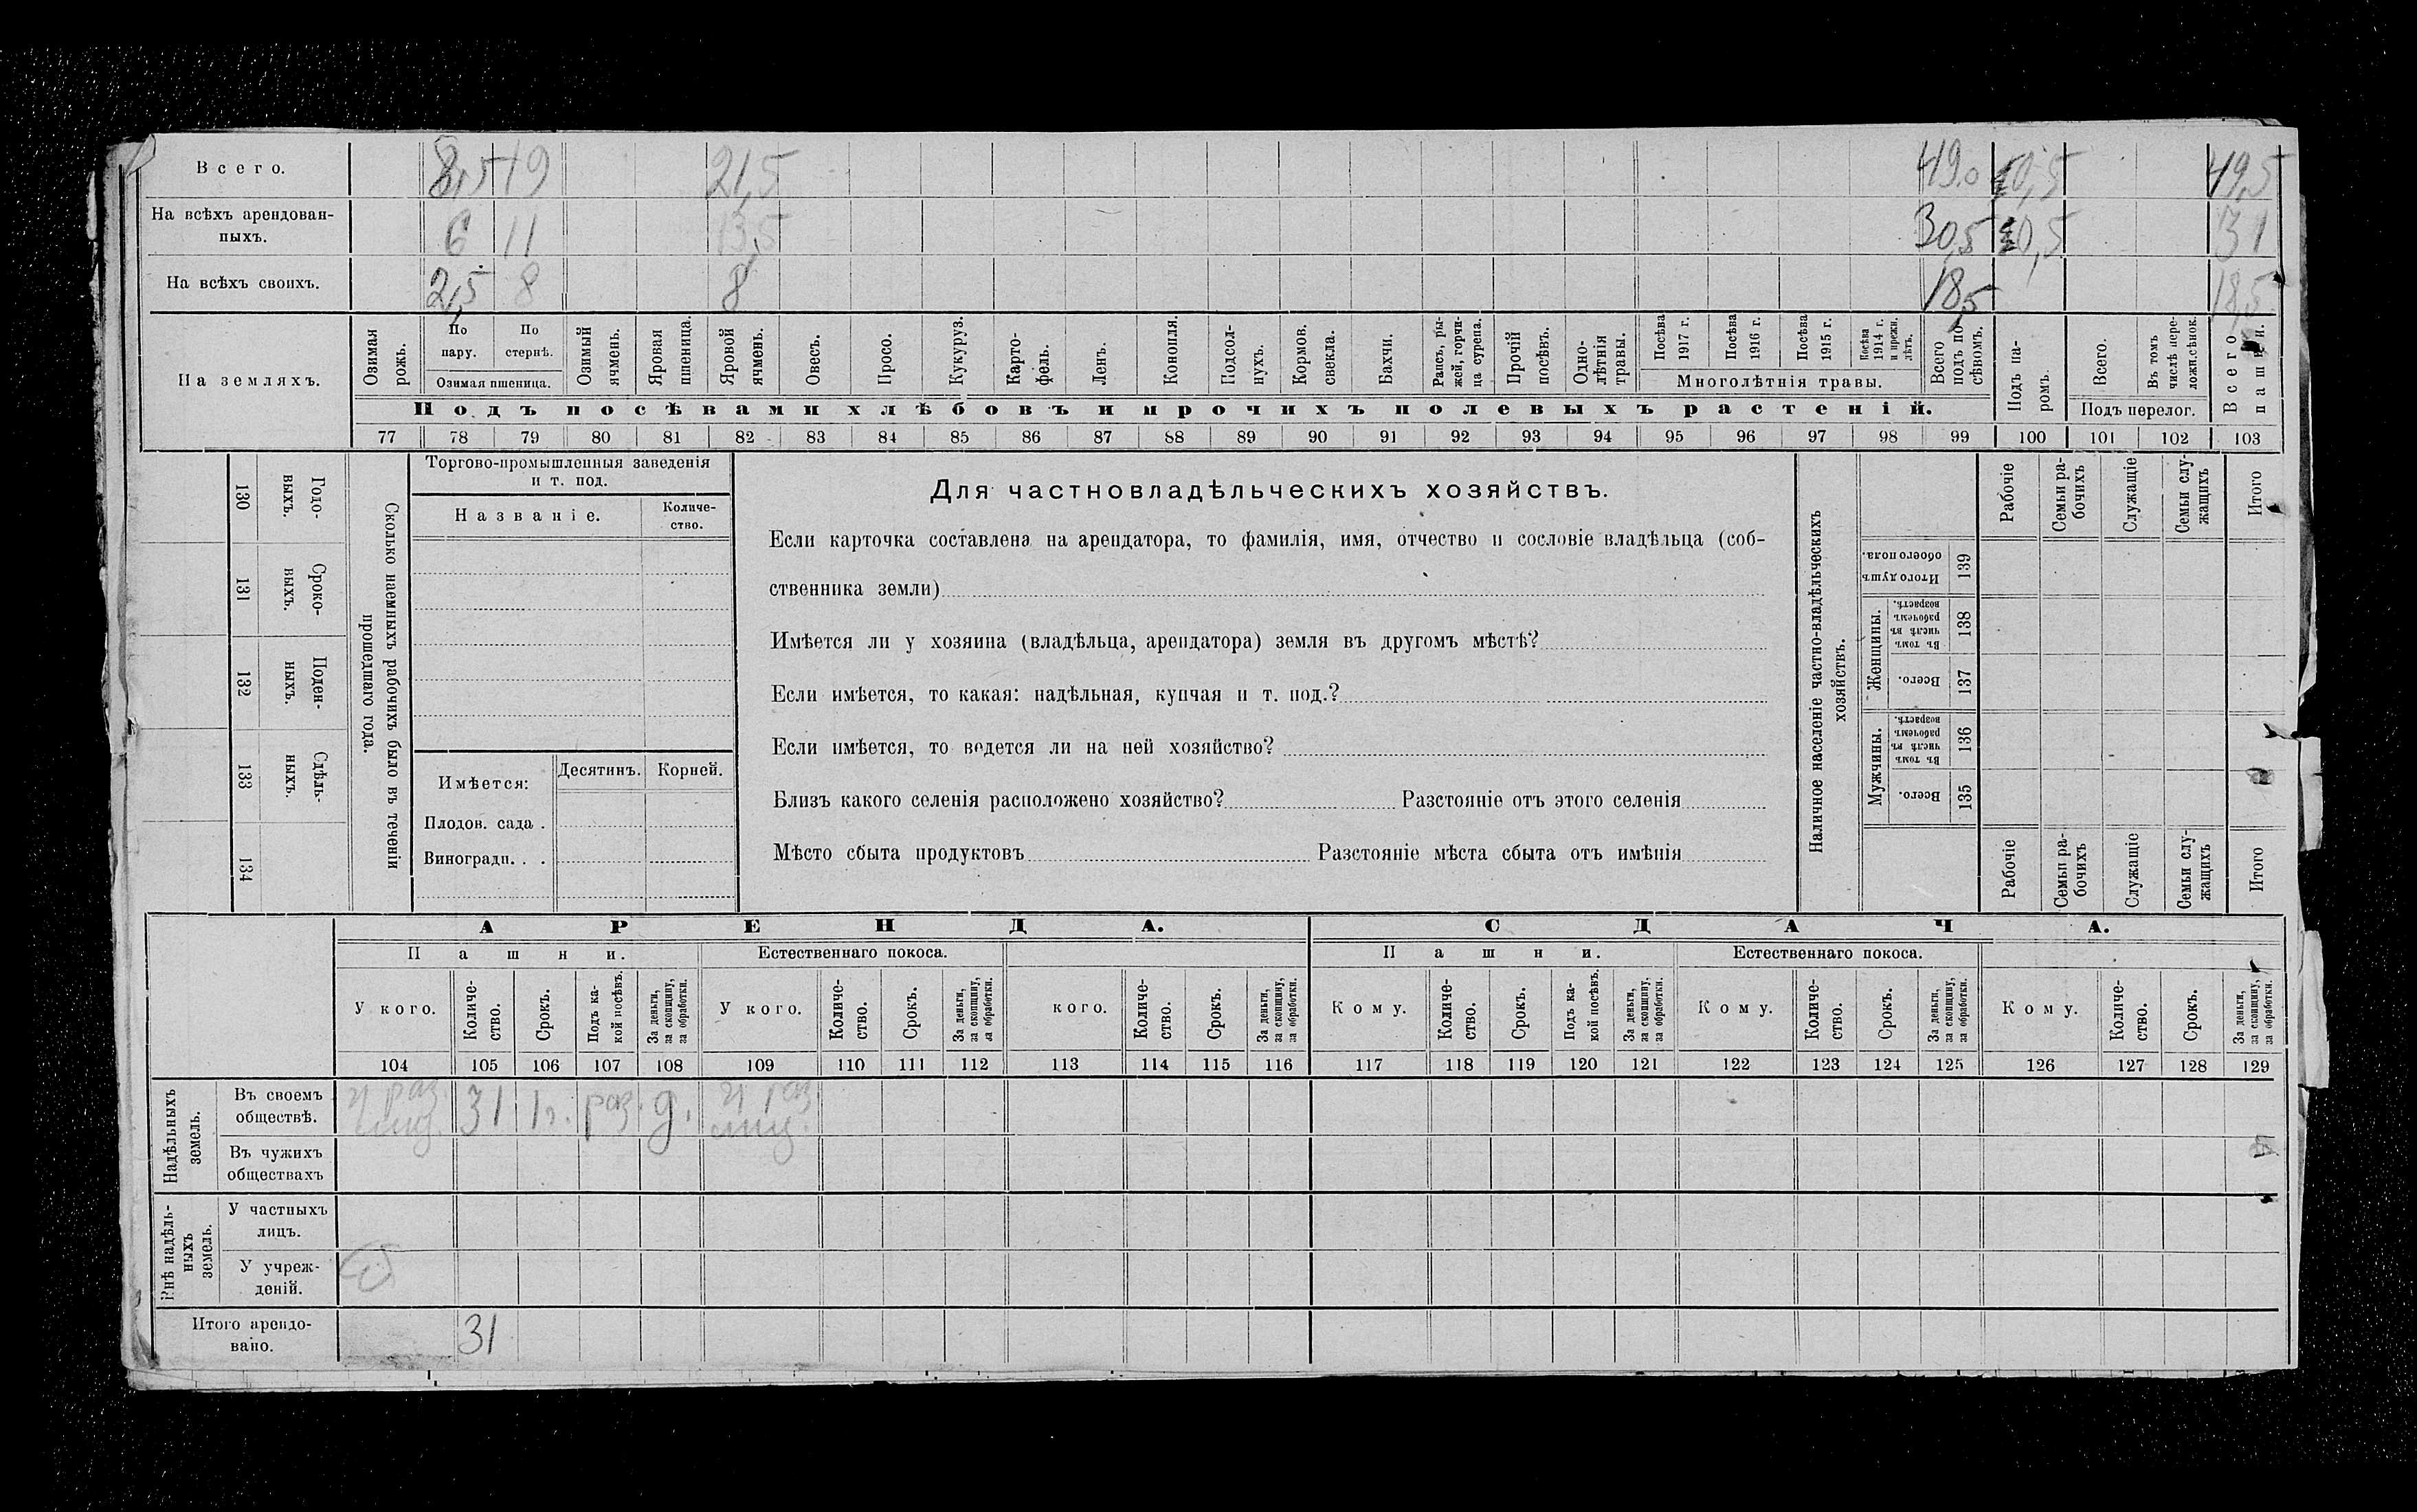 Всего. 8,5 19 21,5 49,0 0,5 49,5
На всѣхъ арендован-
ныхъ. 6 11 13,5 30,5 0,5 31
На всѣхъ своихъ. 2,5 8 8 18,5 18,5
На земляхъ.
Озимая рожь.
По пару.
По стернѣ.
Озимая пшеница.
Озимый ячмень.
Яровая пшеница.
Яровой ячмень.
Овесъ.
Просо.
Кукуруз.
Карто-
фель.
Ленъ.
Конопля.
Подсол-
нухъ.
Кормов. свекла.
Бахчи.
Рапсъ, ры-
жей, горчи-
ца сурепа.
Прочій посѣвъ.
Одно-
лѣтнія травы.
Посѣва 1917 г.
Посѣва 1916 г.
Посѣва 1915 г.
Посѣва 1914 г. и прежн. лѣтъ.
Многолѣтнія травы.
Всего подъ по-
сѣвомъ.
Подъ па-
ромъ.
Всего.
Въ томъ числѣ пере-
ложн.сѣнок.
Подъ перелог.
Всего пашни.
Подъ посѣвами хлѣбовъ и прочихъ полевыхъ растеній.
77 78 79 80 81 82 83 84 85 86 87 88 89 90 91 92 93 94 95 96 97 98 99 100 101 102 103
130 Годо-
выхъ.
131 Сроко-
выхъ.
132 Поден-
ныхъ.
133 Сдѣль-
ныхъ.
134
Сколько наемныхъ рабочихъ было въ теченіи
прошедшаго года.
Торгово-промышленныя заведенія
и т. под.
Названіе.
Количе-
ство.
Имѣется: Десятинъ. Корней.
Плодов. сада .
Виноградн. . .
Для частновладѣльческихъ хозяйствъ.
Если карточка составлена на арендатора, то фамилія, имя, отчество и сословіе владѣльца (соб-
ственника земли)
Имѣется ли у хозяина (владѣльца, арендатора) земля въ другомъ мѣстѣ?
Если имѣется, то какая: надѣльная, купчая и т. под.?
Если имѣется, то ведется ли на ней хозяйство?
Близъ какого селенія расположено хозяйство? Разстояніе отъ этого селенія
Мѣсто сбыта продуктовъ Разстояніе мѣста сбыта отъ имѣнія
Наличное населеніе частно-владѣльческихъ
хозяйствъ.
Рабочіе
Семьи ра-
бочихъ
Служащіе
Семьи слу-
жащихъ
Итого
Итого душъ
обоего пола. 139
Женщины.
Въ томъ числѣ въ рабочемъ возрастѣ. 138
Всего. 137
Мужчины.
Въ томъ числѣ въ рабочемъ возрастѣ. 136
Всего. 135
Рабочіе
Семьи ра-
бочихъ
Служащіе
Семьи слу-
жащихъ
Итого
АРЕНДА. СДАЧА.
Пашни. Естественнаго покоса. Пашни. Естественнаго покоса.
У кого.
Количе-
ство.
Срокъ.
Подъ ка-
кой посѣвъ.
За деньги,
за скопщину,
за обработки.
У кого.
Количе-
ство.
Срокъ.
За деньги,
за скопщину,
за обработки.
кого.
Количе-
ство.
Срокъ.
За деньги,
за скопщину,
за обработки.
Кому.
Количе-
ство.
Срокъ.
Подъ ка-
кой посѣвъ.
За деньги,
за скопщину,
за обработки.
Кому.
Количе-
ство.
Срокъ.
За деньги,
за скопщину,
за обработки.
Кому.
Количе-
ство.
Срокъ.
За деньги,
за скопщину,
за обработки.
104 105 106 107 108 109 110 111 112 113 114 115 116 117 118 119 120 121 122 123 124 125 126 127 128 129
Надѣльныхъ
земель.
Въ своемъ
обществѣ. у раз. лиц. 31 1 г. раз. д. у раз. лиц.
Въ чужихъ
обществахъ
Внѣ надѣль-
ныхъ
земель.
У частныхъ
лицъ.
У учреж-
деній.
Итого арендо-
вано. 31